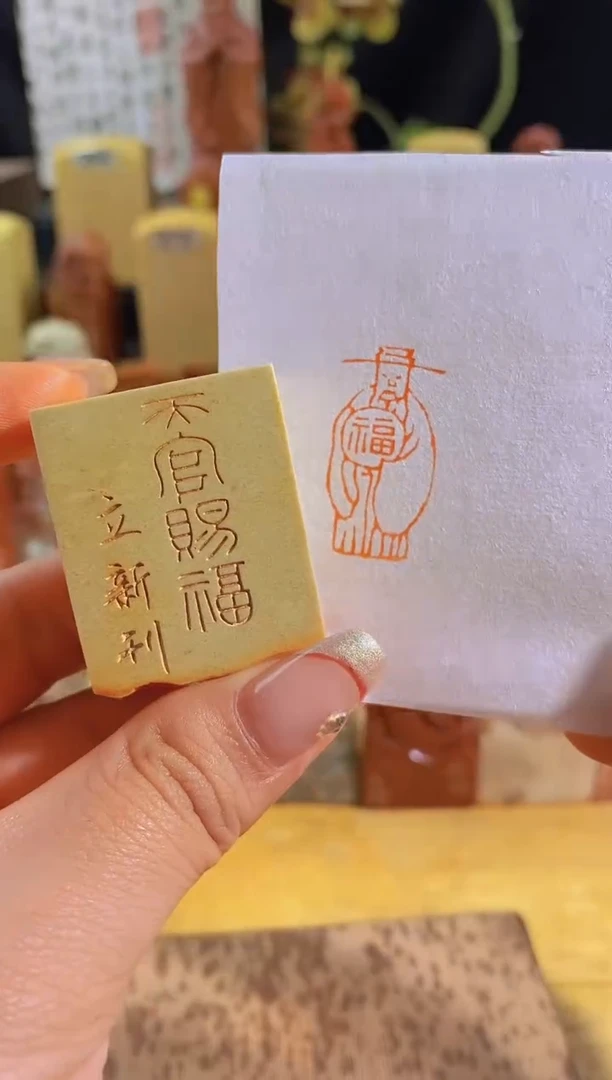 天官賜福
立新刊
福